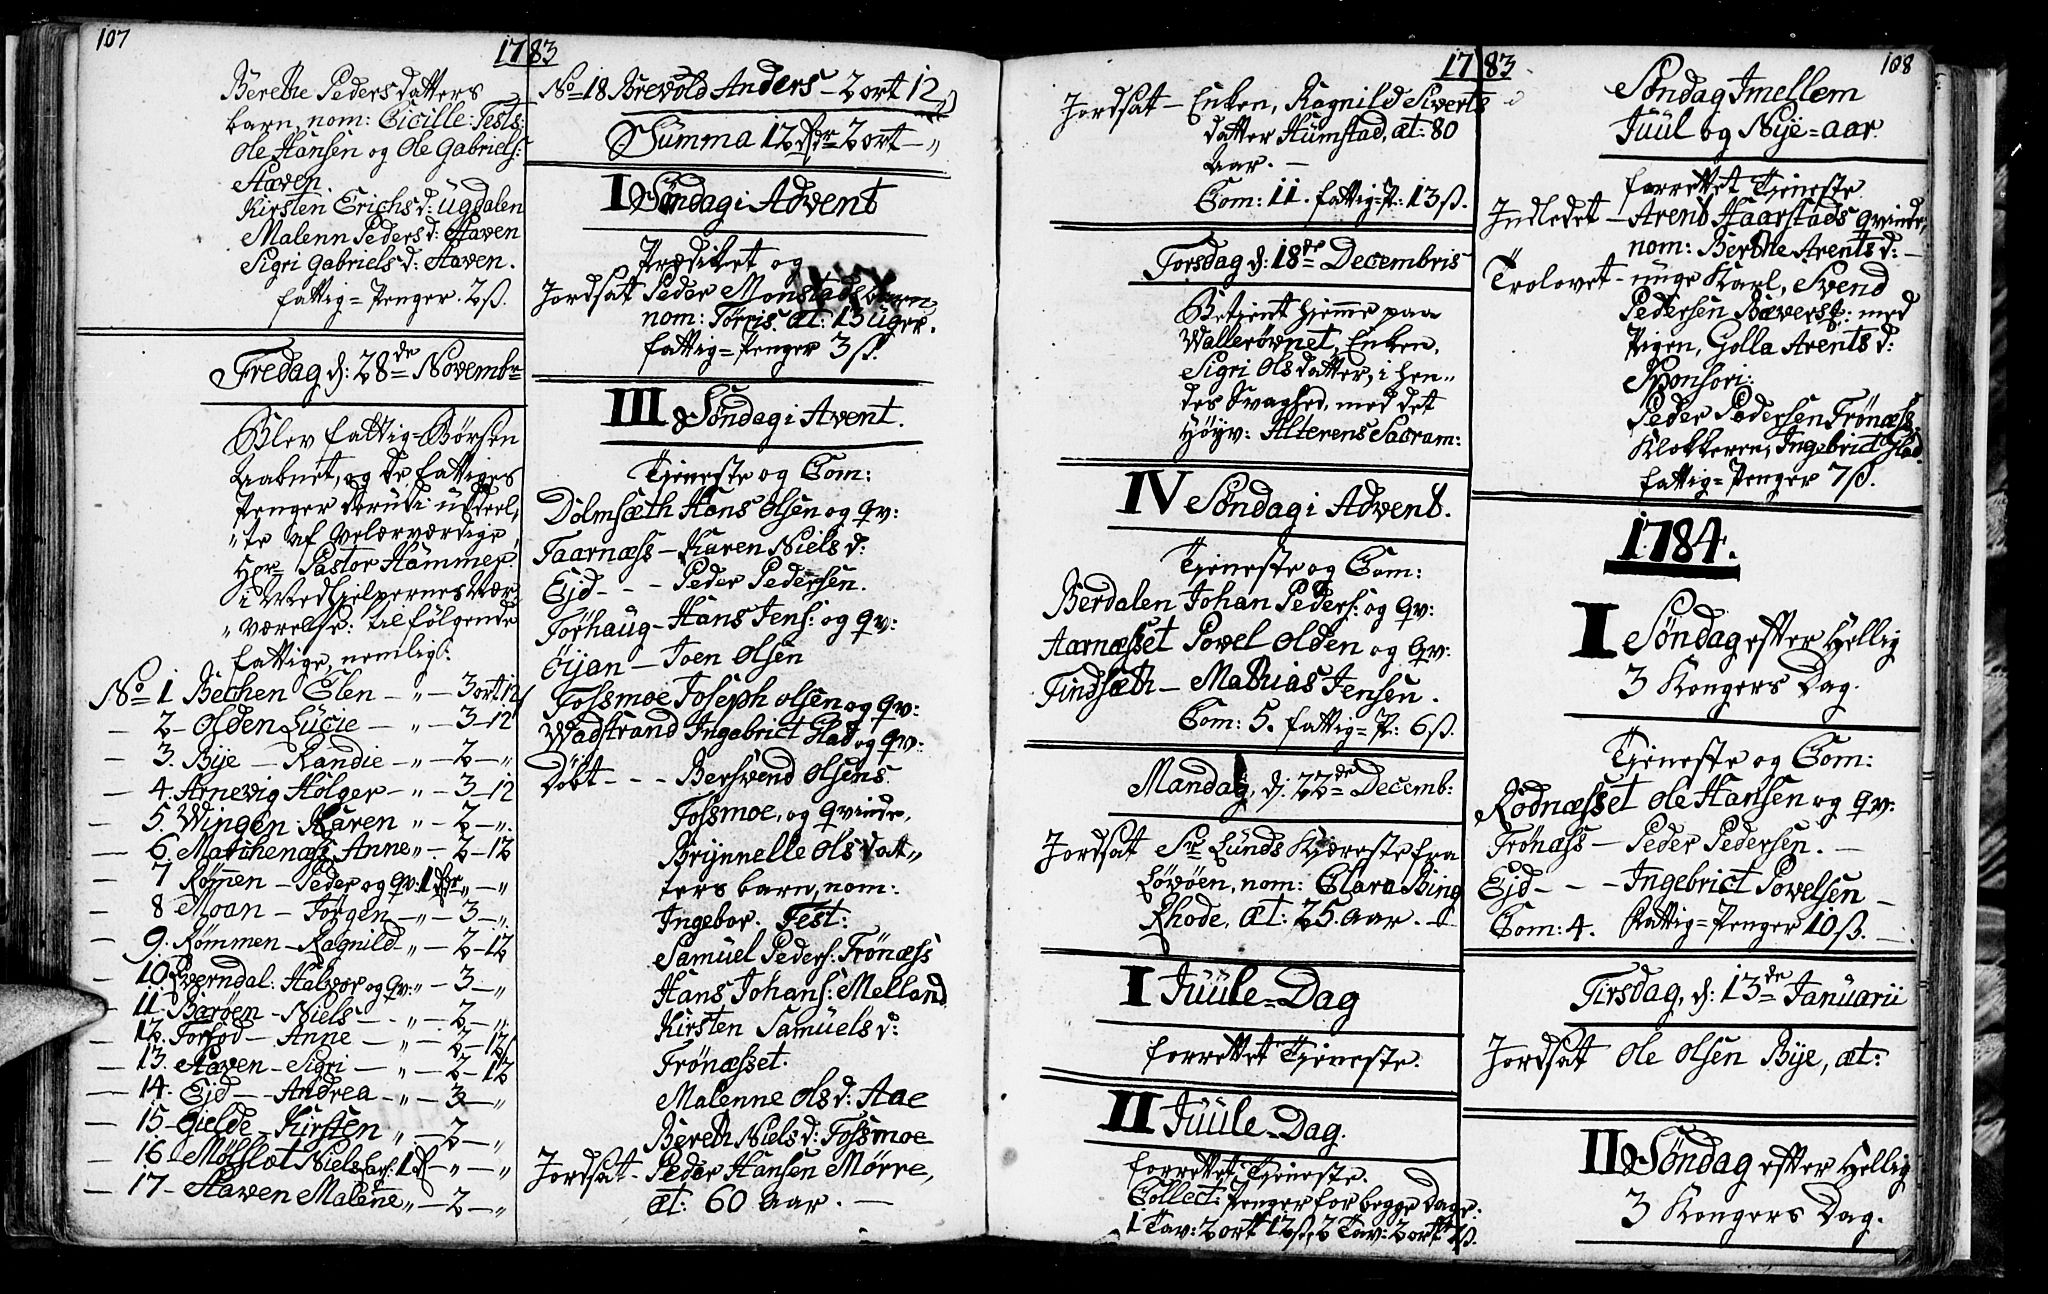 107
1783
Berethe Pedersdatters
barn, nom: Cicille: Test:
Ole Hansen og Ole Gabriels:
Aaven.
Kirsten Erichsd: Ugdalen
Malenn Pedersd: Aaven
Sigri Gabrielsd: Aaven.
fattig=Penger. 2ß.
Fredag d: 28de Novembr
Blev fattig=Børsen
Aabnet, og de fattiges
Penger derudi uddeel,
"te af velærværdige
Hor Pastor Hammer
i Medhielpernes Nær
"værelse: til følgende
fattige, nemlig:
No 1 Bechen Elen - " - 3 ort 12
- 2 - Olden Lucie - " - 3 - 12
- 3. Bye - Randie - " - 2 - "
- 4. Arnevig Holger - " - 3 - 12
- 5. Wingen Karen " - 2 - ".
- 6 Matchenæss Anne " - 2 - 12
- 7 Rømen - Peder og qv: 1 Rdr " - "
- 8 Moan - Jørgen - " - 3 - ".
- 9. Rømmen - Ragnild - " - 2 - 12
- 10. Sverndal. Halvor og qv: " - 3 - "
- 11. Barøen - Niels - " - 2 - "
- 12. Forsod - Anne - " - 2 - 12
- 13. Aaven - Sigri - " - 2 - 12
- 14. Ejd - Andrea - " - 3 - "
- 15 - Gielde - Kirsten " - 2 - "
- 16 - Mølslæt Niels 1 " - "
- 17 - Aaven Malene " - 2 - "
No 18 Brevold Anders - 2 ort 12
Summa 12 Rdr 2 ort - "
I Søndag i Advent
Prædiket og
Jordsat Peder Monstads barn,
nom: Torris. æt: 13 Uger.
fattig=Penger 3ß.
III Søndag i Avent.
Tjeneste og Com:
Dolmsæth Hans Olsen og qv:
Taarnæss - Karen Nielsd:
Ejd - - Peder Pedersen.
Forhaug - Hans Jens: og qv:
Öyan - Joen Olsen
Fossmoe Joseph Olsen og qv:
Wadstrand Ingebrict Hlad og qv:
Døbt - - - Bersvend Olsens
Fossmoe, og qvinde,
Brynnelle Olsdatt"
ters barn, nom:
Ingebor. Test:
Samuel Peders: Trönæss
Hans Johans: Melland
Kirsten Samuelsd:
Trönæsset.
Malenne Olsd: Aae
Bereth Nielsd: Fossmoe
Jordsat - Peder Hansen Mørre,
æt: 60 Aar. -
1783
108
Jordsat - Enken, Ragnild Siverts
datter Humstad, æt: 80
Aar. -
Com: 11. fattig=P: 13ß.
Torsdag d: 18de Decembris
Betient hjeme paa
Wallerøvnet, Enken,
Sigri Olsdatter, i hen"
des Svaghed, med det
Höyv: Alterens Sacram:
IV Søndag i Advent.
Tjeneste og Com:
Berdalen Johan Peders: og qv:
Aarnæsset Povel Olden og qv:
Tindsæth - Mathias Jensen.
Com: 5. fattig=P: 6ß.
Mandag, d: 22de Decemb:
Jordsat Sr Lunds Kjæreste fra
Løvöen, nom: Clara Bing
Rhode, æt: 25 Aar.
I Juule=Dag
forrettet Tjeneste.
II Juule=Dag.
forrettet Tjeneste.
Collect: Penger for begge Dage:
1 Tav: 2 ort 12ß, 2 Tav: 2 ort 1ß.
Søndag Imellem
Juul og Nye=aar
forrettet Tjeneste
Indledet - Arent Haarstads qvinde,
nom: Berthe Arentsd: -
Trolovet - unge Karl, Svend
Pettersen Bæversf: med
Pigen, Golla Arentsd:
Sponsori:
Peder Pedersen Trønæss
Klokkeren, Ingebrict Hlad.
fattig=Penger 7ß.
1784.
I Søndag efter Hellig
3 Kongers Dag.
Tjeneste og Com:
Rödnæsset Ole Hansen og qv:
Trönæss - Peder Pedersen. -
Ejd - - - Ingebrict Povelsen -
Com: 4. Fattig=Penger 10ß. -
Tirsdag, d: 13de Januarii
Jordsat Ole Olsen Bye, æt:
II Søndag efter Hellig
3 Kongers Dag.